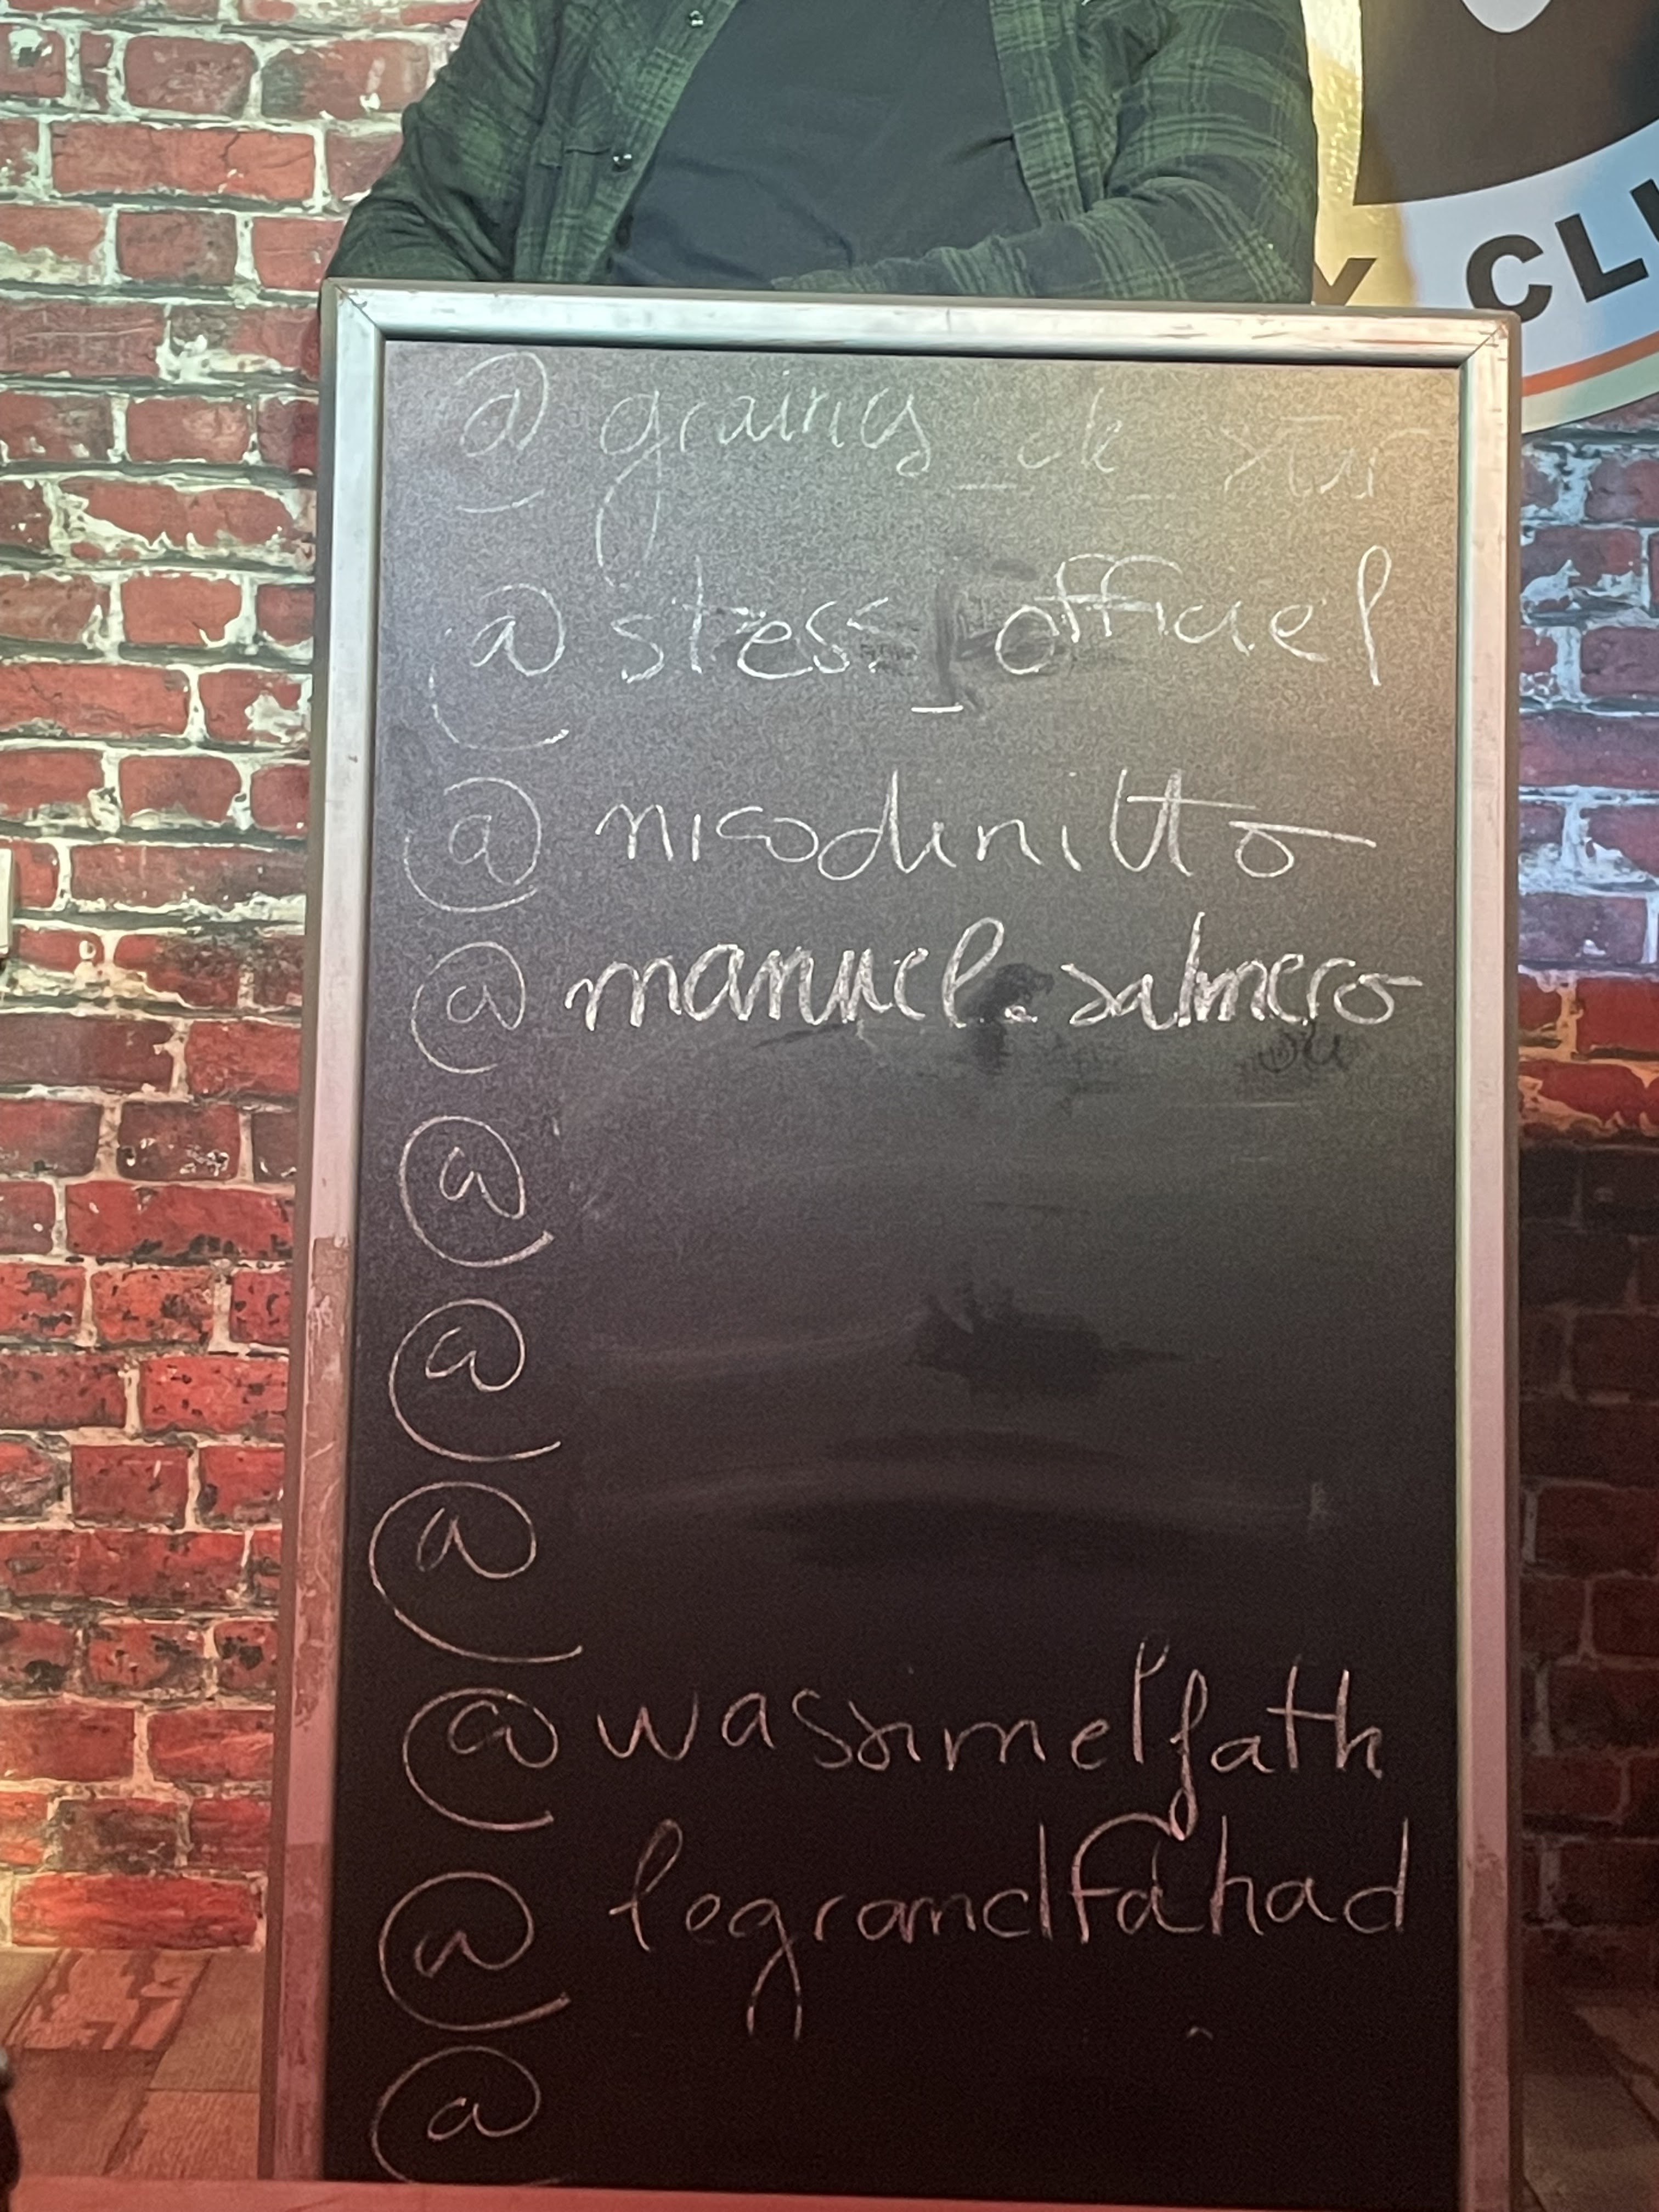 CLU
@ graines_de_star
@ stess_officiel
@ nicodinitto
@ manuel.salmero
@
@
@
@ wassimelfath
@ legrandfahad
@